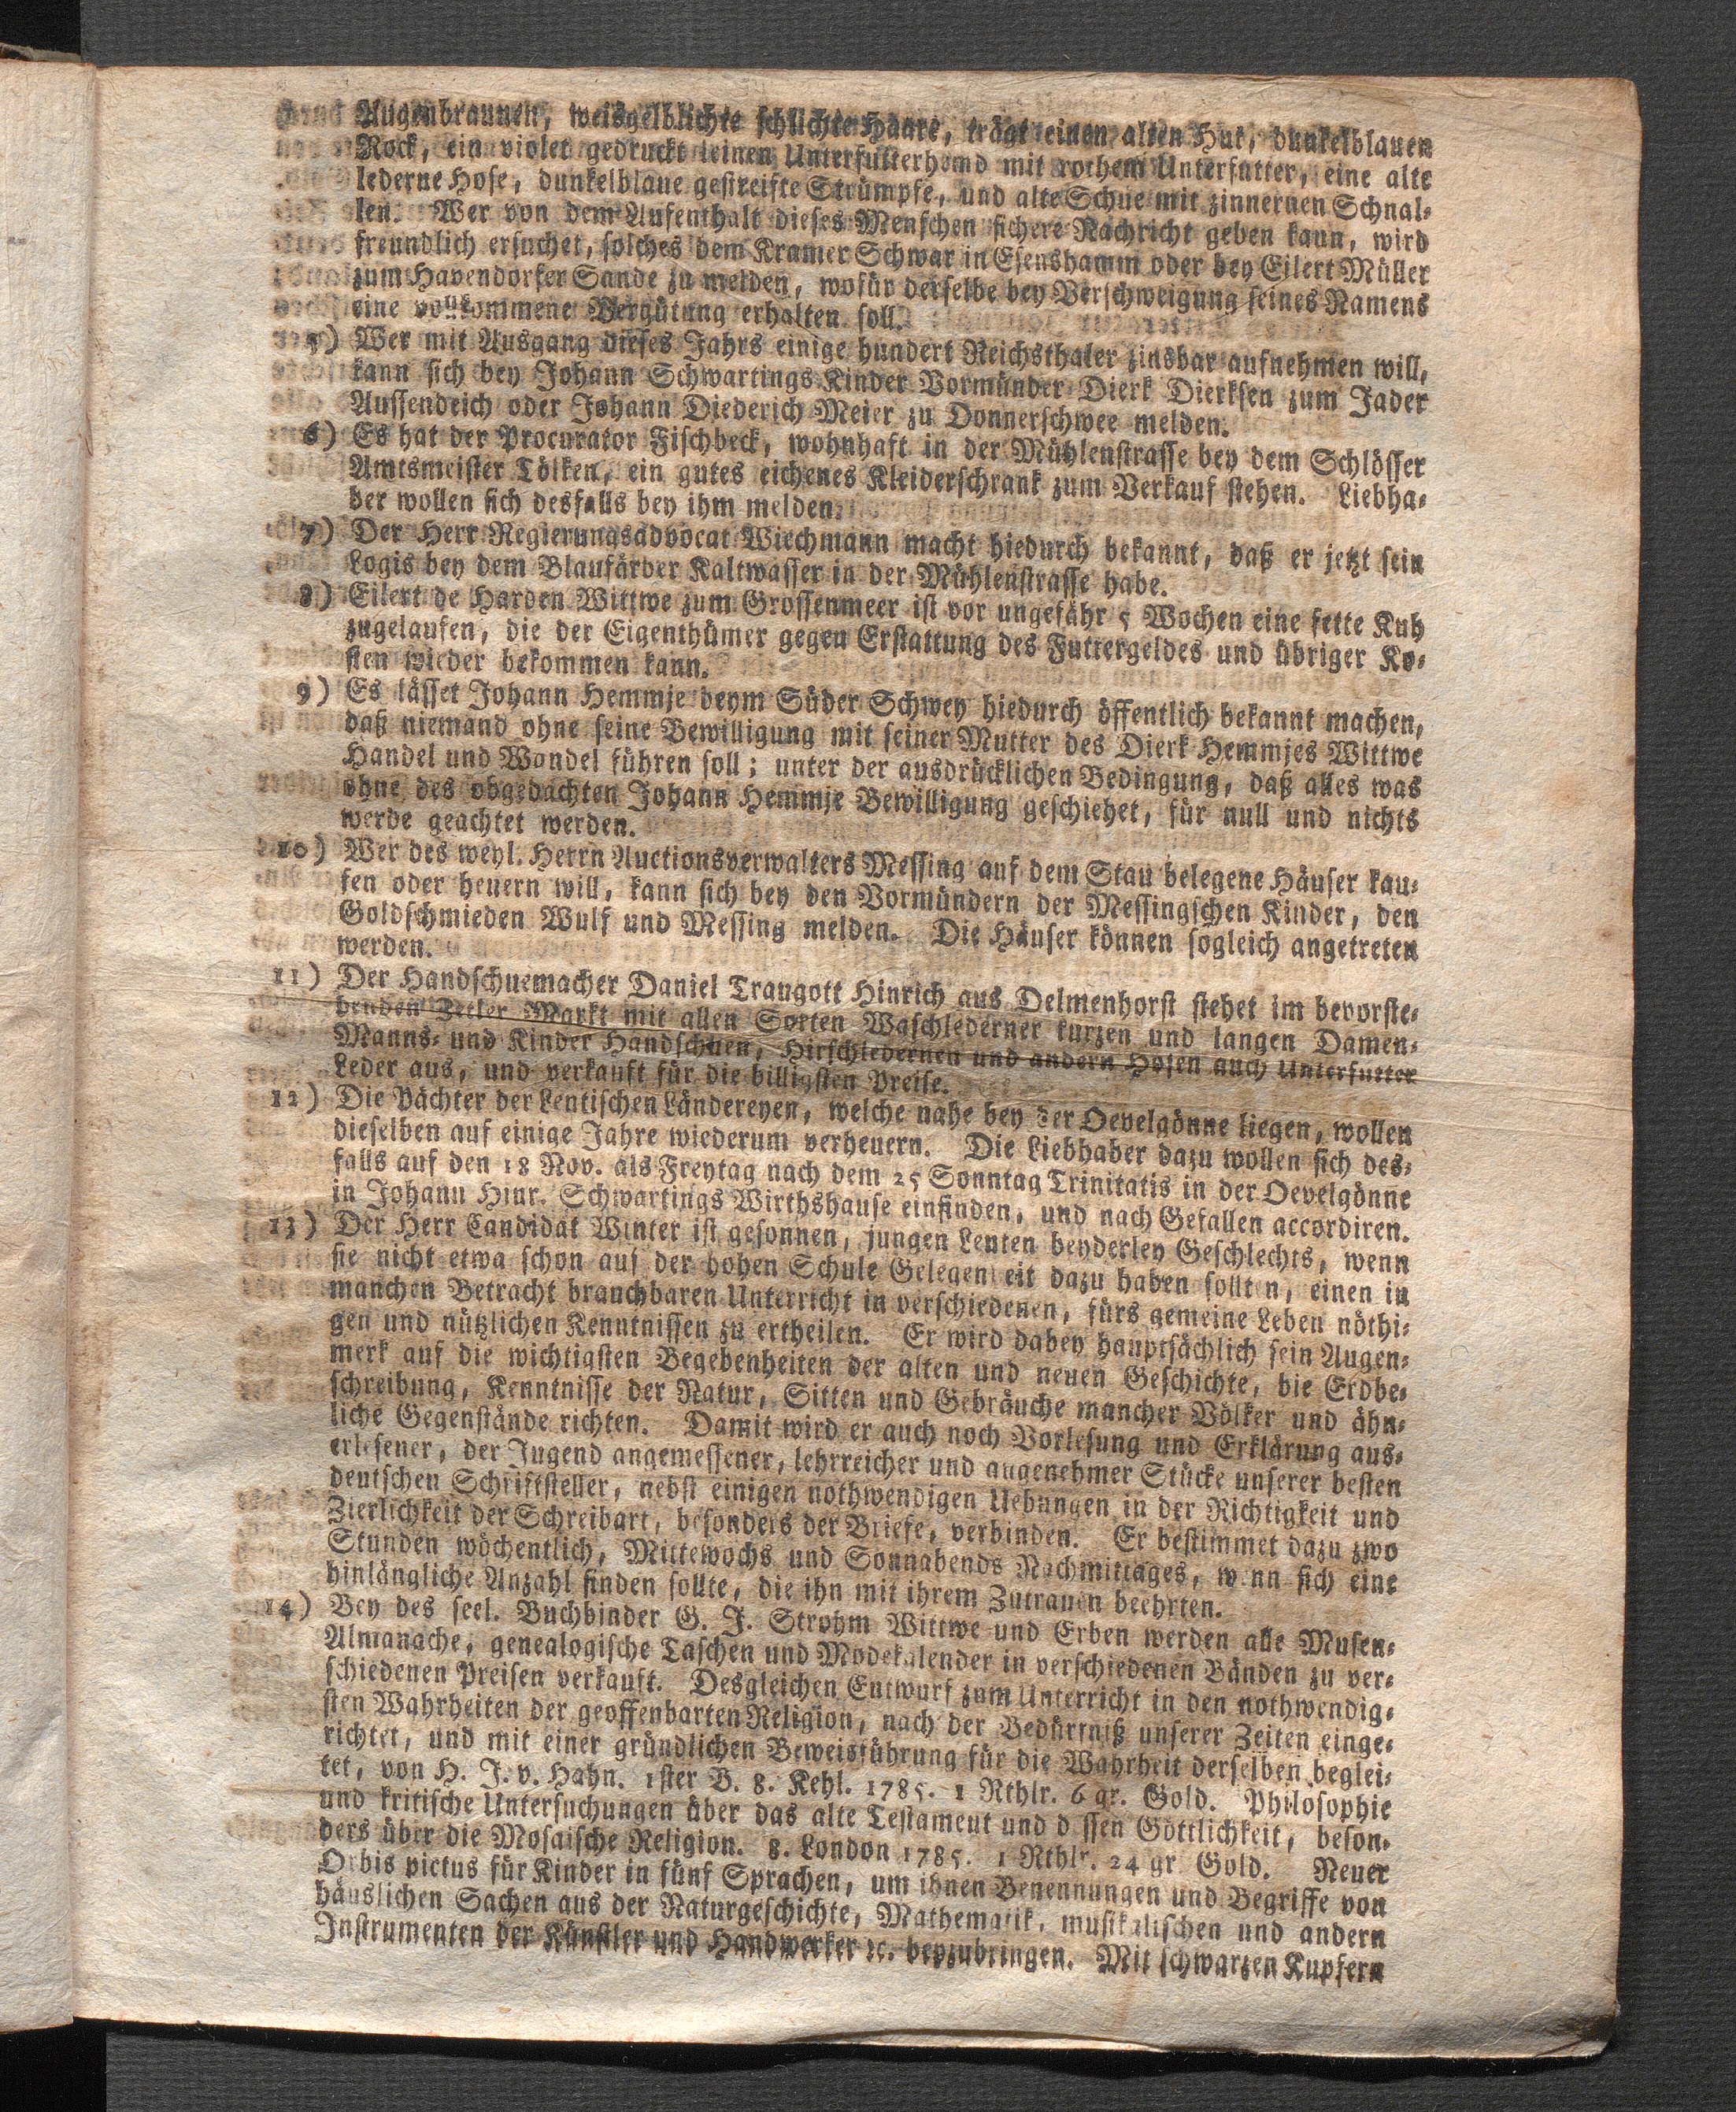 Augenbraunen, weisgelblichte schlichte Haare, trägt einen alten Hut, dunkelblauen
Rock, ein violet gedruckt leinen Unterfutterhemd mit rothem Unterfutter, eine alte
lederne Hose, dunkelblaue gestreifte Strümpfe, und alte Schue mit zinnernen Schnal-
len. Wer von dem Aufenthalt dieses Menschen sichere Nachricht geben kann, wird
freundlich ersuchet, solches dem Kramer Schwar in Esenshamm oder bey Eilert Müller
zum Havendorfer Sande zu melden, wofür derselbe bey Verschweigung seines Namens
eine vollkommene Vergütung erhalten soll.
5) Wer mit Ausgang dieses Jahrs einige hundert Reichsthaler zinsbar aufnehmen will,
kann sich bey Johann Schwartings Kinder Vormünder Dierk Dierksen zum Jader
Aussendeich oder Johann Diederich Meier zu Donnerschwee melden.
6) Es hat der Procurator Fischbeck, wohnhaft in der Mühlenstrasse bey dem Schlösser
Amtsmeister Tölken, ein gutes eichenes Kleiderschrank zum Verkauf stehen. Liebha-
ber wollen sich desfalls bey ihm melden.
7) Der Herr Regierungsadvocat Wiechmann macht hiedurch bekannt, daß er jetzt sein
Logis bey dem Blaufärber Kaltwasser in der Mühlenstrasse habe.
8) Eilert de Harden Wittwe zum Grossenmeer ist vor ungefähr 5 Wochen eine fette Kuh
zugelaufen, die der Eigenthümer gegen Erstattung des Futtergeldes und übriger Ko-
sten wieder bekommen kann.
9) Es lässet Johann Hemmje beym Süder Schwey hiedurch öffentlich bekannt machen,
daß niemand ohne seine Bewilligung mit seiner Mutter des Dierk Hemmjes Wittwe
Handel und Wandel führen soll; unter der ausdrücklichen Bedingung, daß alles was
ohne des obgedachten Johann Hemmje Bewilligung geschiehet, für null und nichts
werde geachtet werden.
10) Wer des weyl. Herrn Auctionsverwalters Messing auf dem Stau belegene Häuser kau-
fen oder heuern will, kann sich bey den Vormündern der Messingschen Kinder, den
Goldschmieden Wulf und Messing melden. Die Häuser können sogleich angetreten
werden.
11) Der Handschuemacher Daniel Traugott Hinrich aus Delmenhorst stehet im bevorste-
henden Zetler Markt mit allen Sorten Waschlederner kurzen und langen Damen-
Manns- und Kinder Handschuen, Hirschledernen und andern Hosen auch Unterfutter
Leder aus, und verkauft für die billigsten Preise.
12) Die Pächter der Lentischen Ländereyen, welche nahe bey der Oevelgönne liegen, wollen
dieselben auf einige Jahre wiederum verheuern. Die Liebhaber dazu wollen sich des-
falls auf den 18 Nov. als Freytag nach dem 25 Sonntag Trinitatis in der Oevelgönne
in Johann Hinr. Schwartings Wirthshause einfinden, und nach Gefallen accordiren.
13) Der Herr Candidat Winter ist gesonnen, jungen Leuten beyderley Geschlechts, wenn
sie nicht etwa schon auf der hohen Schule Gelegenheit dazu haben sollten, einen in
manchen Betracht brauchbaren Unterricht in verschiedenen, fürs gemeine Leben nöthi-
gen und nützlichen Kenntnissen zu ertheilen. Er wird dabey hauptsächlich sein Augen-
merk auf die wichtigsten Begebenheiten der alten und neuen Geschichte, die Erdbe-
schreibung, Kenntnisse der Natur, Sitten und Gebräuche mancher Völker und ähn-
liche Gegenstände richten. Damit wird er auch noch Vorlesung und Erklärung aus-
erlesener, der Jugend angemessener, lehrreicher und angenehmer Stücke unserer besten
deutschen Schriftsteller, nebst einigen nothwendigen Uebungen in der Richtigkeit und
Zierlichkeit der Schreibart, besonders der Briefe, verbinden. Er bestimmet dazu zwo
Stunden wöchentlich, Mittewochs und Sonnabends Nachmittages, wenn sich eine
hinlängliche Anzahl finden sollte, die ihn mit ihrem Zutrauen beehrten.
14) Bey des seel. Buchbinder G. J. Strohm Wittwe und Erben werden alle Musen-
Almanache, genealogische Taschen und Modekalender in verschiedenen Bänden zu ver-
schiedenen Preisen verkauft. Desgleichen Entwurf zum Unterricht in den nothwendig-
sten Wahrheiten der geoffenbarten Religion, nach der Bedürfniß unserer Zeiten einge-
richtet, und mit einer gründlichen Beweisführung für die Wahrheit derselben beglei-
tet, von H. J. v. Hahn. 1ster B. 8. Kehl. 1785. 1 Rthlr. 6 gr. Gold. Philosophie
und kritische Untersuchungen über das alte Testament und dessen Göttlichkeit, beson-
ders über die Mosaische Religion. 8. London 1785. 1 Rthlr. 24 gr. Gold. Neuer
Orbis pictus für Kinder in fünf Sprachen, um ihnen Benennungen und Begriffe von
häuslichen Sachen aus der Naturgeschichte, Mathematik, musikalischen und andern
Instrumenten der Künstler und Handwerker 2c. beyzubringen. Mit schwarzen Kupfern